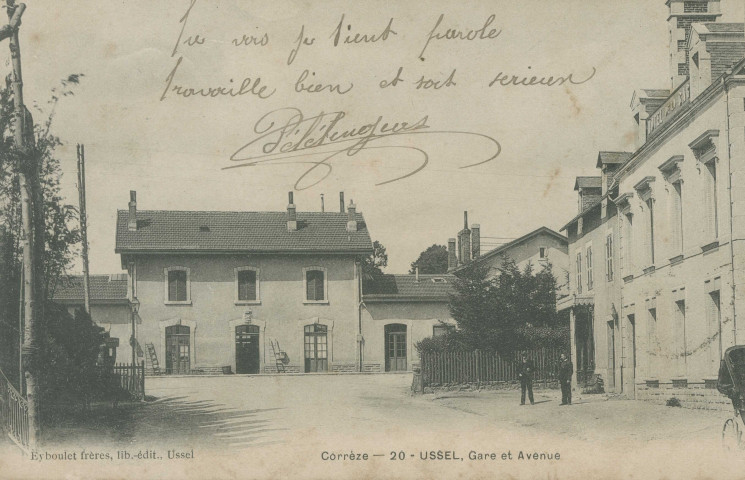 Tu vois je tient parole
travaille bien et soit serieux
Eyboulet frères, lib.-édit., Ussel
Corrèze — 20 - USSEL, Gare et Avenue